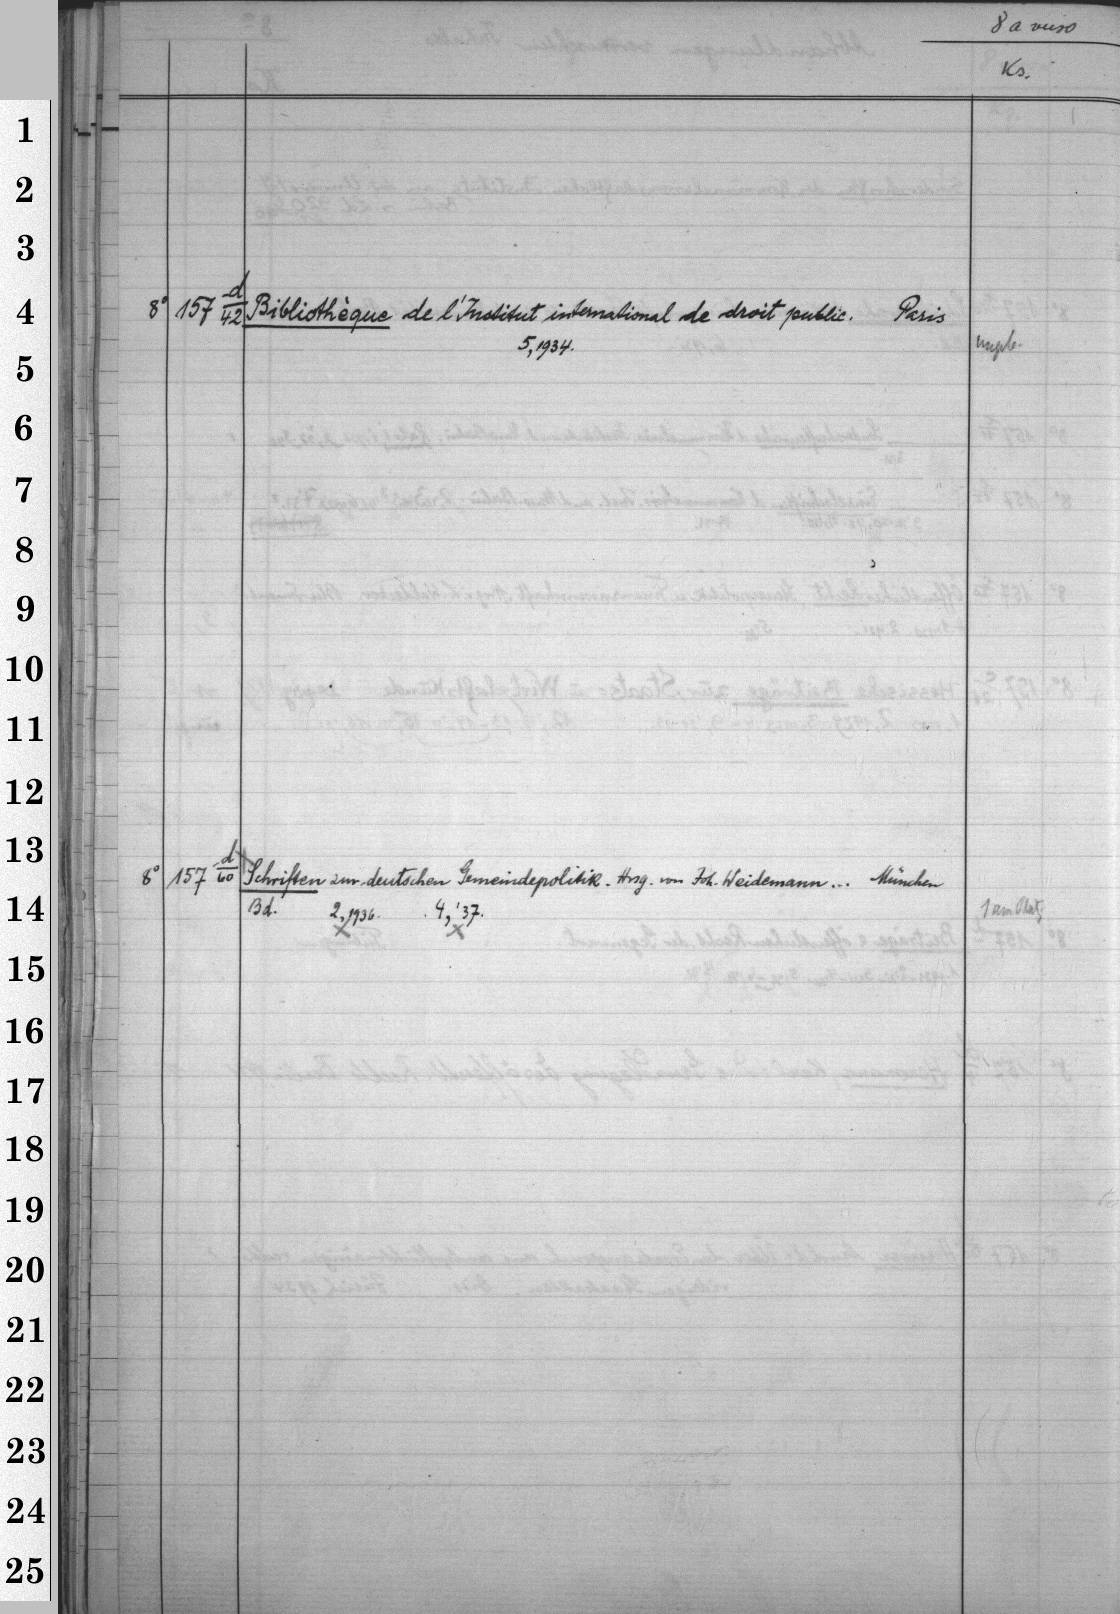 8a verso
Ks.
1
2
3
4
8° 157 d/42 Bibliothèque de l'Institut international de droit public. Paris
5, 1934.
5
6
7
8
9
10
11
12
13
8° 157 d/60 Schriften zur deutschen Gemeindepolitik. Hrsg. von Joh. Weidemann... München
14
Bd. 2, 1936. 4, '37.
x x
15
16
17
18
19
20
21
22
23
24
25